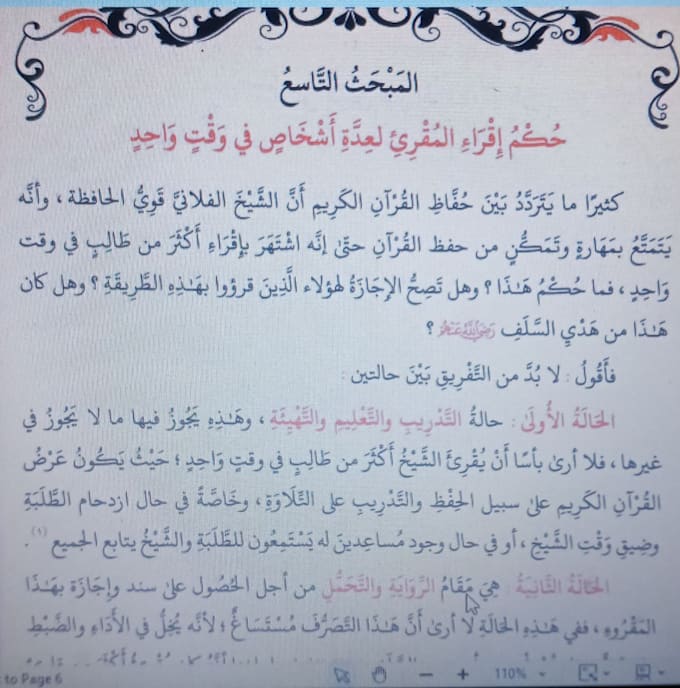 المَبْحَثُ التَّاسِعُ
حُكْمُ إِقْرَاءِ المُقْرِئِ لِعِدَّةِ أَشْخَاصٍ فِي وَقْتٍ وَاحِدٍ
كثيرًا ما يَتَرَدَّدُ بَيْنَ حُفَّاظِ القُرْآنِ الكَرِيمِ أَنَّ الشَّيْخَ الفلانيَّ قَوِيُّ الحافظة، وأنَّه
يَتَمَتَّعُ بمَهَارةٍ وتَمَكُّنٍ من حفظ القُرْآنِ حتى إنَّه اشْتَهَرَ بإقراءِ أَكْثَرَ من طالبٍ في وقت
واحِدٍ، فما حُكْمُ هَذَا؟ وهل تَصِحُّ الإجَازةُ لهؤلاءِ الَّذِينَ قرؤوا بهَذِهِ الطَّرِيقَةِ؟ وهل كان
هَذَا من هَدْيِ السَّلَفِ رَضِيَ اللهُ عَنْهُمْ؟
فأَقُولُ: لا بُدَّ من التَّفْرِيقِ بَيْنَ حالتين:
الحَالَةُ الأُولَى: حالةُ التَّدْرِيبِ والتَّعْلِيمِ والتَّهْيِئَةِ، وهَذِهِ يَجُوزُ فيها ما لا يَجُوزُ في
غيرها، فلا أرى بأسًا أَنْ يُقْرِئَ الشَّيْخُ أَكْثَرَ من طالبٍ في وقت واحِدٍ؛ حَيْثُ يَكُونُ غَرَضُ
القُرْآنِ الكَرِيمِ على سبيل الحِفْظِ والتَّدْرِيبِ على التِّلَاوَةِ، وخَاصَّةً في حال ازدحام الطَّلَبَةِ
وضِيقِ وَقْتِ الشَّيْخِ، أو في حال وجود مُسَاعِدِينَ له يَسْتَمِعُونَ للطَّلَبَةِ والشَّيْخُ يتابع الجميع (١).
الحَالَةُ الثَّانِيَةُ: هِيَ مَقَامُ الرِّوَايَةِ والتَّحَمُّلِ من أجل الحُصُولِ على سند وإجَازةٍ بهَذَا
المَقْرُوءِ، ففي هَذِهِ الحَالَةِ لا أرى أَنَّ هَذَا التَّصَرُّفَ مُسْتَسَاغٌ؛ لأَنَّه يُخِلُّ في الأَدَاءِ والضَّبْطِ
to Page 6
110%